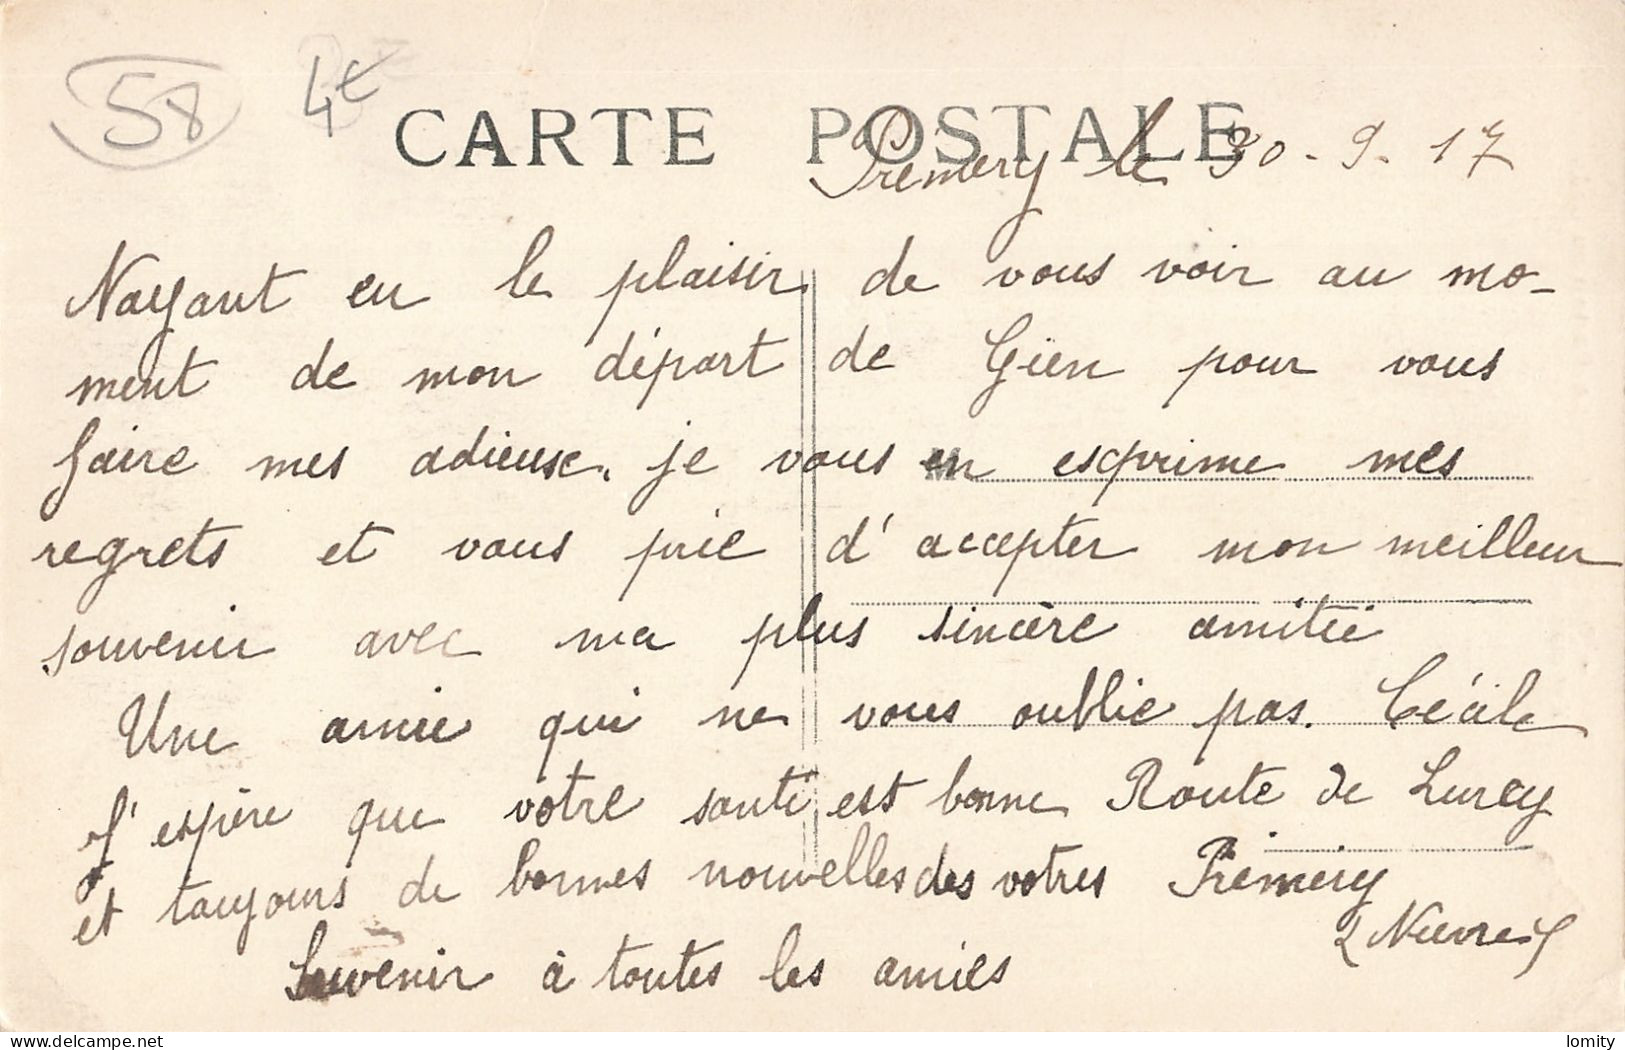 58 4€
CARTE POSTALE
Prémery le 30-9-17
Nayant eu le plaisir de vous voir au mo-
ment de mon départ de Gien pour vous
faire mes adieux, je vous en exprime mes
regrets et vous prie d'accepter mon meilleur
souvenir avec ma plus sincère amitié
Une amie qui ne vous oublie pas. Cécile
J'espère que votre santé est bonne Route de Lurcy
et toujours de bonnes nouvelles des votres Prémery
(Nièvre)
Souvenir à toutes les amies
delcampe.net
lomity